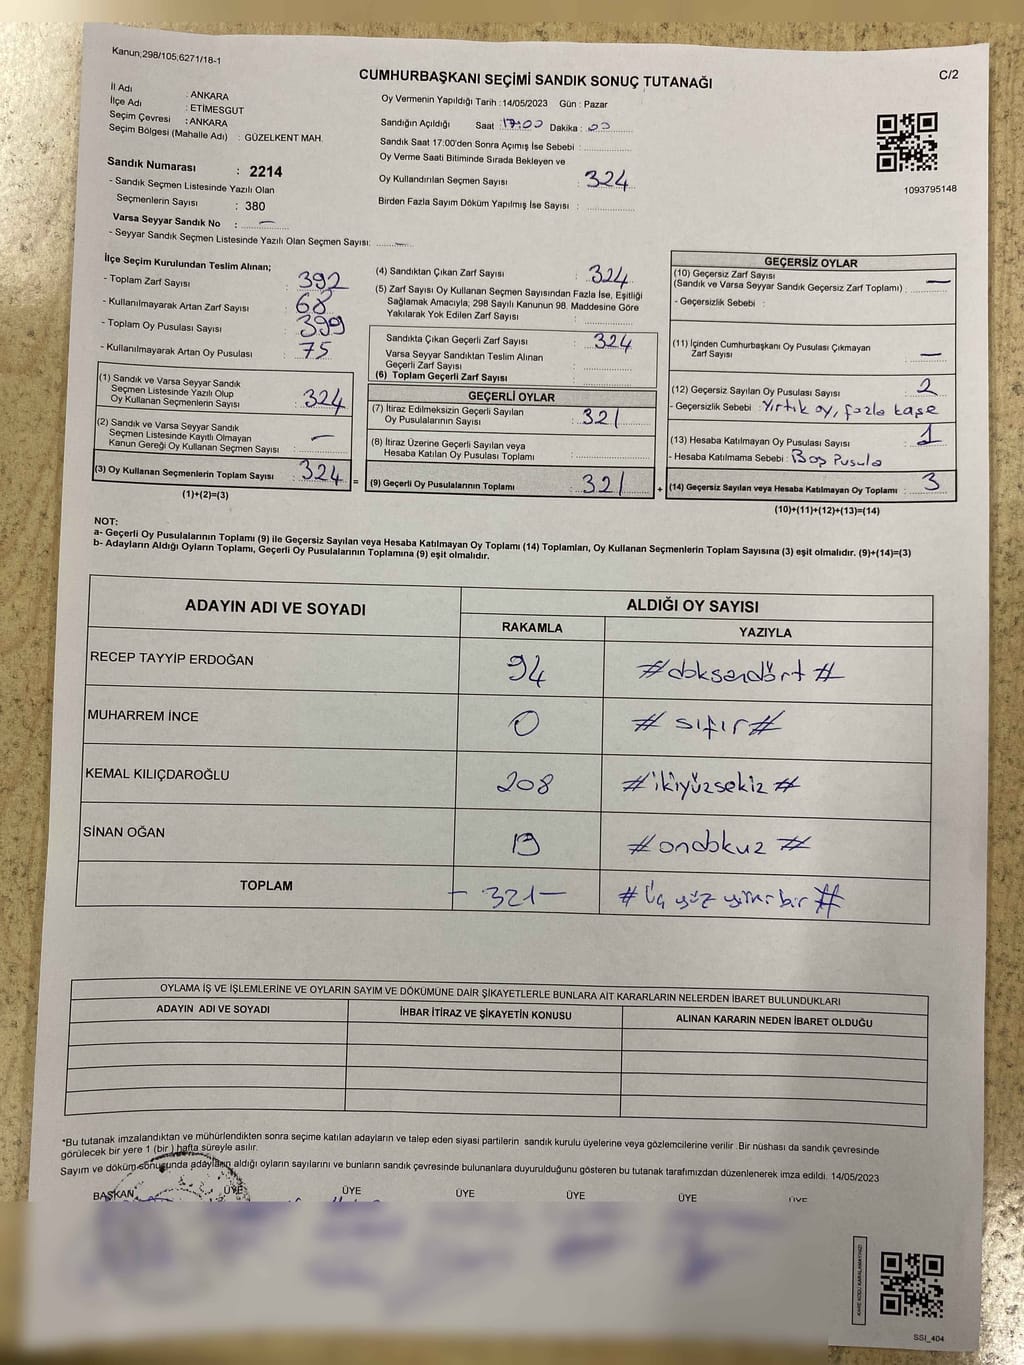 Kanun;298/105,6271/18-1
C/2
CUMHURBAŞKANI SEÇİMİ SANDIK SONUÇ TUTANAĞI
İl Adı : ANKARA
İlçe Adı : ETİMESGUT
Seçim Çevresi : ANKARA
Seçim Bölgesi (Mahalle Adı) : GÜZELKENT MAH.
Sandık Numarası : 2214
- Sandık Seçmen Listesinde Yazılı Olan
Seçmenlerin Sayısı : 380
Varsa Seyyar Sandık No : —
- Seyyar Sandık Seçmen Listesinde Yazılı Olan Seçmen Sayısı: —
Oy Vermenin Yapıldığı Tarih : 14/05/2023 Gün : Pazar
Sandığın Açıldığı Saat 17:00 Dakika : 00
Sandık Saat 17:00'den Sonra Açımış İse Sebebi :
Oy Verme Saati Bitiminde Sırada Bekleyen ve
Oy Kullandırılan Seçmen Sayısı : 324
Birden Fazla Sayım Döküm Yapılmış İse Sayısı :
1093795148
İlçe Seçim Kurulundan Teslim Alınan;
- Toplam Zarf Sayısı : 392
- Kullanılmayarak Artan Zarf Sayısı : 68
- Toplam Oy Pusulası Sayısı : 399
- Kullanılmayarak Artan Oy Pusulası : 75
(1) Sandık ve Varsa Seyyar Sandık
Seçmen Listesinde Yazılı Olup
Oy Kullanan Seçmenlerin Sayısı : 324
(2) Sandık ve Varsa Seyyar Sandık
Seçmen Listesinde Kayıtlı Olmayan
Kanun Gereği Oy Kullanan Seçmen Sayısı : —
(3) Oy Kullanan Seçmenlerin Toplam Sayısı : 324
(1)+(2)=(3)
(4) Sandıktan Çıkan Zarf Sayısı : 324
(5) Zarf Sayısı Oy Kullanan Seçmen Sayısından Fazla İse, Eşitliği
Sağlamak Amacıyla; 298 Sayılı Kanunun 98. Maddesine Göre
Yakılarak Yok Edilen Zarf Sayısı :
Sandıkta Çıkan Geçerli Zarf Sayısı : 324
Varsa Seyyar Sandıktan Teslim Alınan
Geçerli Zarf Sayısı :
(6) Toplam Geçerli Zarf Sayısı :
GEÇERLİ OYLAR
(7) İtiraz Edilmeksizin Geçerli Sayılan
Oy Pusulalarının Sayısı : 321
(8) İtiraz Üzerine Geçerli Sayılan veya
Hesaba Katılan Oy Pusulası Toplamı :
= (9) Geçerli Oy Pusulalarının Toplamı : 321
GEÇERSİZ OYLAR
(10) Geçersiz Zarf Sayısı
(Sandık ve Varsa Seyyar Sandık Geçersiz Zarf Toplamı) : —
- Geçersizlik Sebebi :
(11) İçinden Cumhurbaşkanı Oy Pusulası Çıkmayan
Zarf Sayısı : —
(12) Geçersiz Sayılan Oy Pusulası Sayısı : 2
- Geçersizlik Sebebi : Yırtık oy, fazla kaşe
(13) Hesaba Katılmayan Oy Pusulası Sayısı : 1
- Hesaba Katılmama Sebebi : Boş Pusula
+ (14) Geçersiz Sayılan veya Hesaba Katılmayan Oy Toplamı : 3
(10)+(11)+(12)+(13)=(14)
NOT:
a- Geçerli Oy Pusulalarının Toplamı (9) ile Geçersiz Sayılan veya Hesaba Katılmayan Oy Toplamı (14) Toplamları, Oy Kullanan Seçmenlerin Toplam Sayısına (3) eşit olmalıdır. (9)+(14)=(3)
b- Adayların Aldığı Oyların Toplamı, Geçerli Oy Pusulalarının Toplamına (9) eşit olmalıdır.
ADAYIN ADI VE SOYADI ALDIĞI OY SAYISI
RAKAMLA YAZIYLA
RECEP TAYYİP ERDOĞAN 94 #doksandört#
MUHARREM İNCE 0 #sıfır#
KEMAL KILIÇDAROĞLU 208 #ikiyüzsekiz#
SİNAN OĞAN 19 #ondokuz#
TOPLAM - 321 - #Üç yüz yirmi bir#
OYLAMA İŞ VE İŞLEMLERİNE VE OYLARIN SAYIM VE DÖKÜMÜNE DAİR ŞİKAYETLERLE BUNLARA AİT KARARLARIN NELERDEN İBARET BULUNDUKLARI
ADAYIN ADI VE SOYADI İHBAR İTİRAZ VE ŞİKAYETİN KONUSU ALINAN KARARIN NEDEN İBARET OLDUĞU
*Bu tutanak imzalandıktan ve mühürlendikten sonra seçime katılan adayların ve talep eden siyasi partilerin sandık kurulu üyelerine veya gözlemcilerine verilir .Bir nüshası da sandık çevresinde
görülecek bir yere 1 (bir ) hafta süreyle asılır.
Sayım ve döküm sonucunda adayların aldığı oyların sayılarını ve bunların sandık çevresinde bulunanlara duyurulduğunu gösteren bu tutanak tarafımızdan düzenlenerek imza edildi. 14/05/2023
BAŞKAN ÜYE ÜYE ÜYE ÜYE ÜYE ÜYE
SSI_404